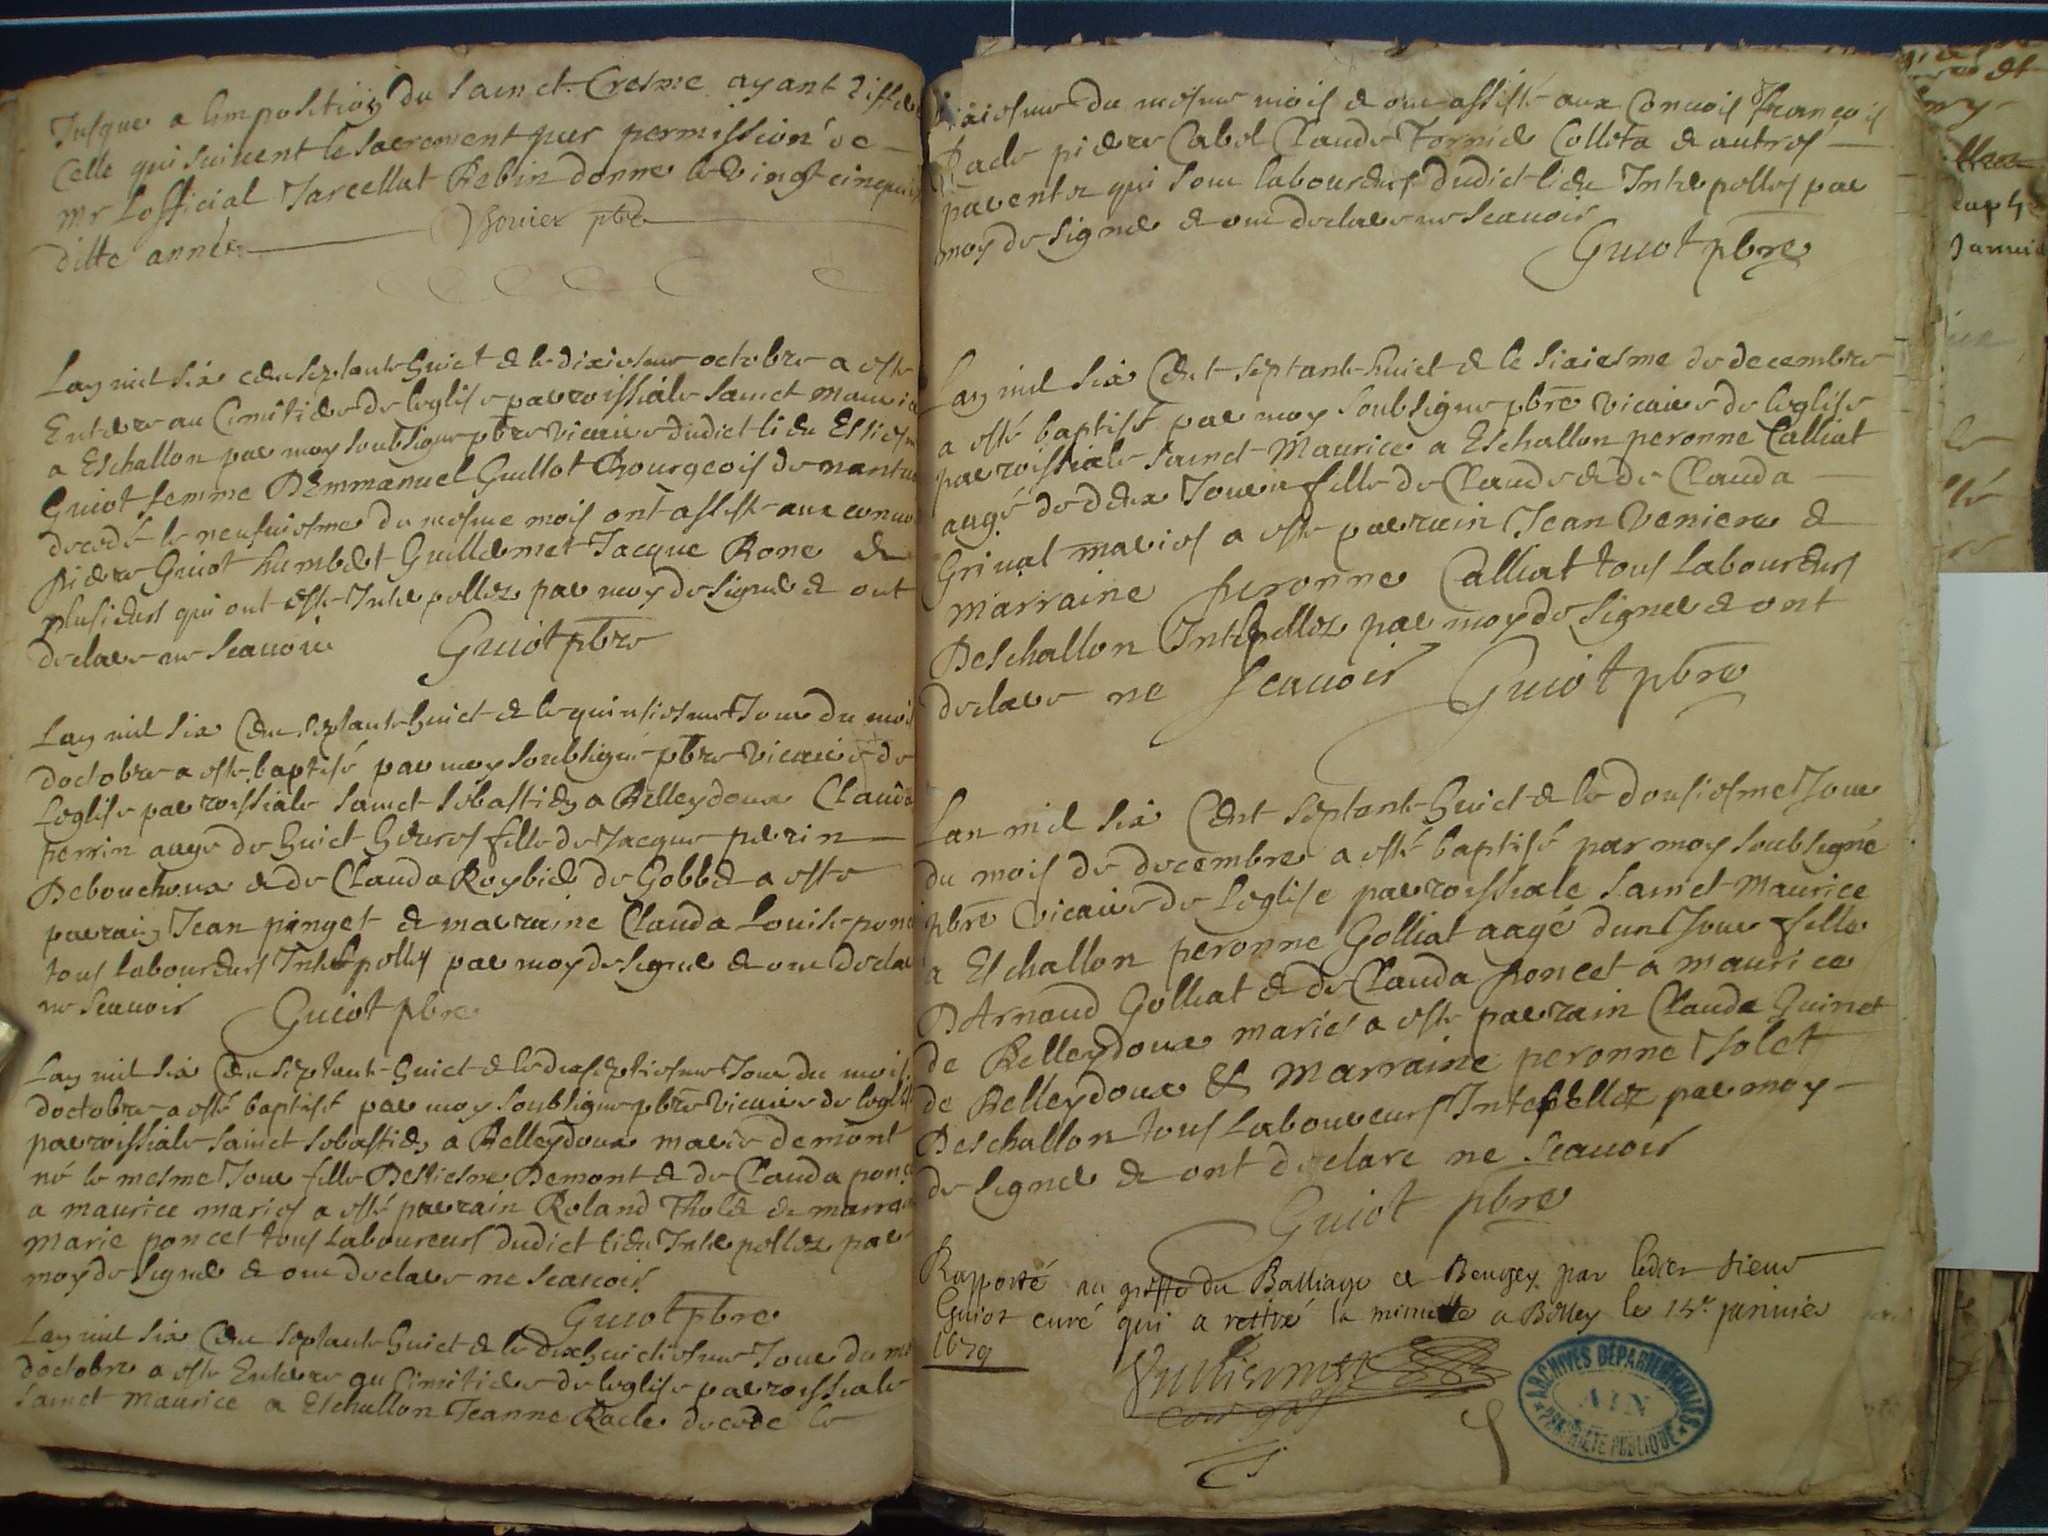 Jusque a limposition du Sainct Cresme ayant
Celle qui suivent le sacrement par permission de
Mr Lofficial Jarcellat Rebin donne le vingt cinquie
ditte année pbre
Lan mil six cen septante huict & le dixiesme octobre a este
Enterre au Cimitiere de leglise parroissiale Sainct Mauri
a Eschallon par moy soubsigne pbre vicaire dudict lieu Estien
Guiot femme D'Emmanuel Guillot Bourgeois de nantu
decedé le neufuiesme du mesme mois ont assiste aux convo
Piere Guiot humbert Guillemet Jacque Rone &
plusieurs qui ont este Interpellez par moy de signer & ont
declare ne scauoir Guiot pbre
Lan mil six Cen septante huict & le quinsiesme Jour du mois
doctobre a este baptisé par moy soubsigné pbre vicaire de
Leglise parroissiale Sainct Sebastien a Belleydoux Clauda
perrin aage de huict heures fille de Jacque perrin
Debouchoux & de Clauda Roybier de Gobbet a este
parrain Jean pinget & marraine Clauda Louise ponc
tous laboureurs Interpelles par moy de signer & ont decla
ne scauoir Guiot pbre
Lan mil six Cen septante huict & le dixseptiesme Jour du mois
doctobre a esté baptisé par moy soubsigne pbre vicaire de leglise
parroissiale Sainct Sebastien a Belleydoux marie demont
né le mesme Jour fille Destiesne Demont & de Clauda ponc
a maurice maries a esté parrain Roland Tholet & marrai
Marie poncet tous Laboureurs dudict lieu Interpellez par
moy de signer & ont declare ne scauoir
Guiot pbre
Lan mil six Cen septante huict & le dixhuictiesme Jour du mo
doctobre a este Enterre au Cimitiere de leglise parroissiale
Sainct Maurice a Eschallon Jeanne Racle decede le
du mesme mois & ont assisté aux Convois François
Racle piere Cabol Claude Tornier Colleta & autres
parentz qui sont laboureurs dudict lieu Interpelles par
moy de signer & ont declare ne scauoir
Guiot pbre
Lan mil six Cent septante huict & le sixiesme de decembre
a esté baptisé par moy soubsigne pbre vicaire de leglise
parroissiale Sainct Maurice a Eschallon peronne Calliat
aagé de deux Jours fille de Claude & de Clauda
Griuat maries a este parrain Jean Veniere &
marraine peronne Calliat tous Laboureurs
Deschallon Interpellez par moy de signer & ont
declare ne scauoir Guiot pbre
Lan mil six Cent septante huict & le dousiesme Jour
du mois de decembre a esté baptisé par moy soubsigné
pbre vicaire de Leglise parroissiale Sainct Maurice
a Eschallon peronne Golliat aagé dun Jour fille
D'Arnaud Golliat & de Clauda poncet a maurice
de Belleydoux mariés a este parrain Claude Guinet
de Belleydoux & Marraine peronne Jolet
Deschallon tous Laboureurs Interpellez par moy
de signer & ont declare ne scauoir
Guiot pbre
Rapporté au greffe du Balliage de Beugey par ledict sieur
Guiot curé qui a retiré la minutte a Belley le 14e janvie
1679
Vuilliermet
ARCHIVES DÉPARTEMENTALES
AIN
PROPRIÉTÉ PUBLIQUE